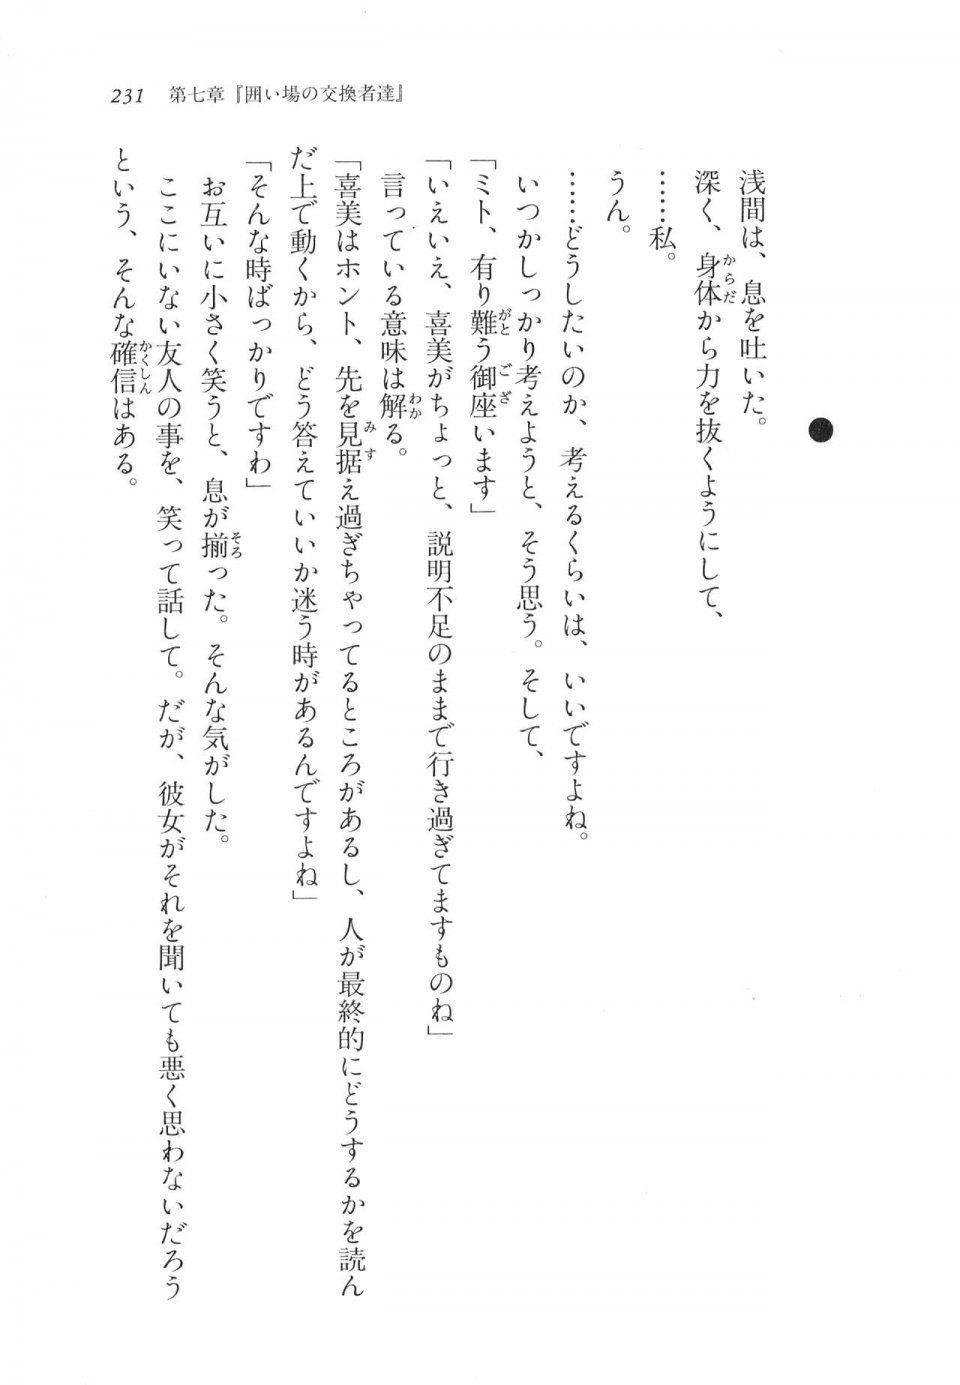 231　第七章『囲い場の交換者達』
●
浅間は、息を吐いた。
深く、身体から力を抜くようにして、
……私。
うん。
……どうしたいのか、考えるくらいは、いいですよね。
いつかしっかり考えようと、そう思う。そして、
「ミト、有り難う御座います」
「いえいえ、喜美がちょっと、説明不足のままで行き過ぎてますものね」
言っている意味は解る。
「喜美はホント、先を見据え過ぎちゃってるところがあるし、人が最終的にどうするかを読ん
だ上で動くから、どう答えていいか迷う時があるんですよね」
「そんな時ばっかりですわ」
お互いに小さく笑うと、息が揃った。そんな気がした。
ここにいない友人の事を、笑って話して。だが、彼女がそれを聞いても悪く思わないだろう
という、そんな確信はある。